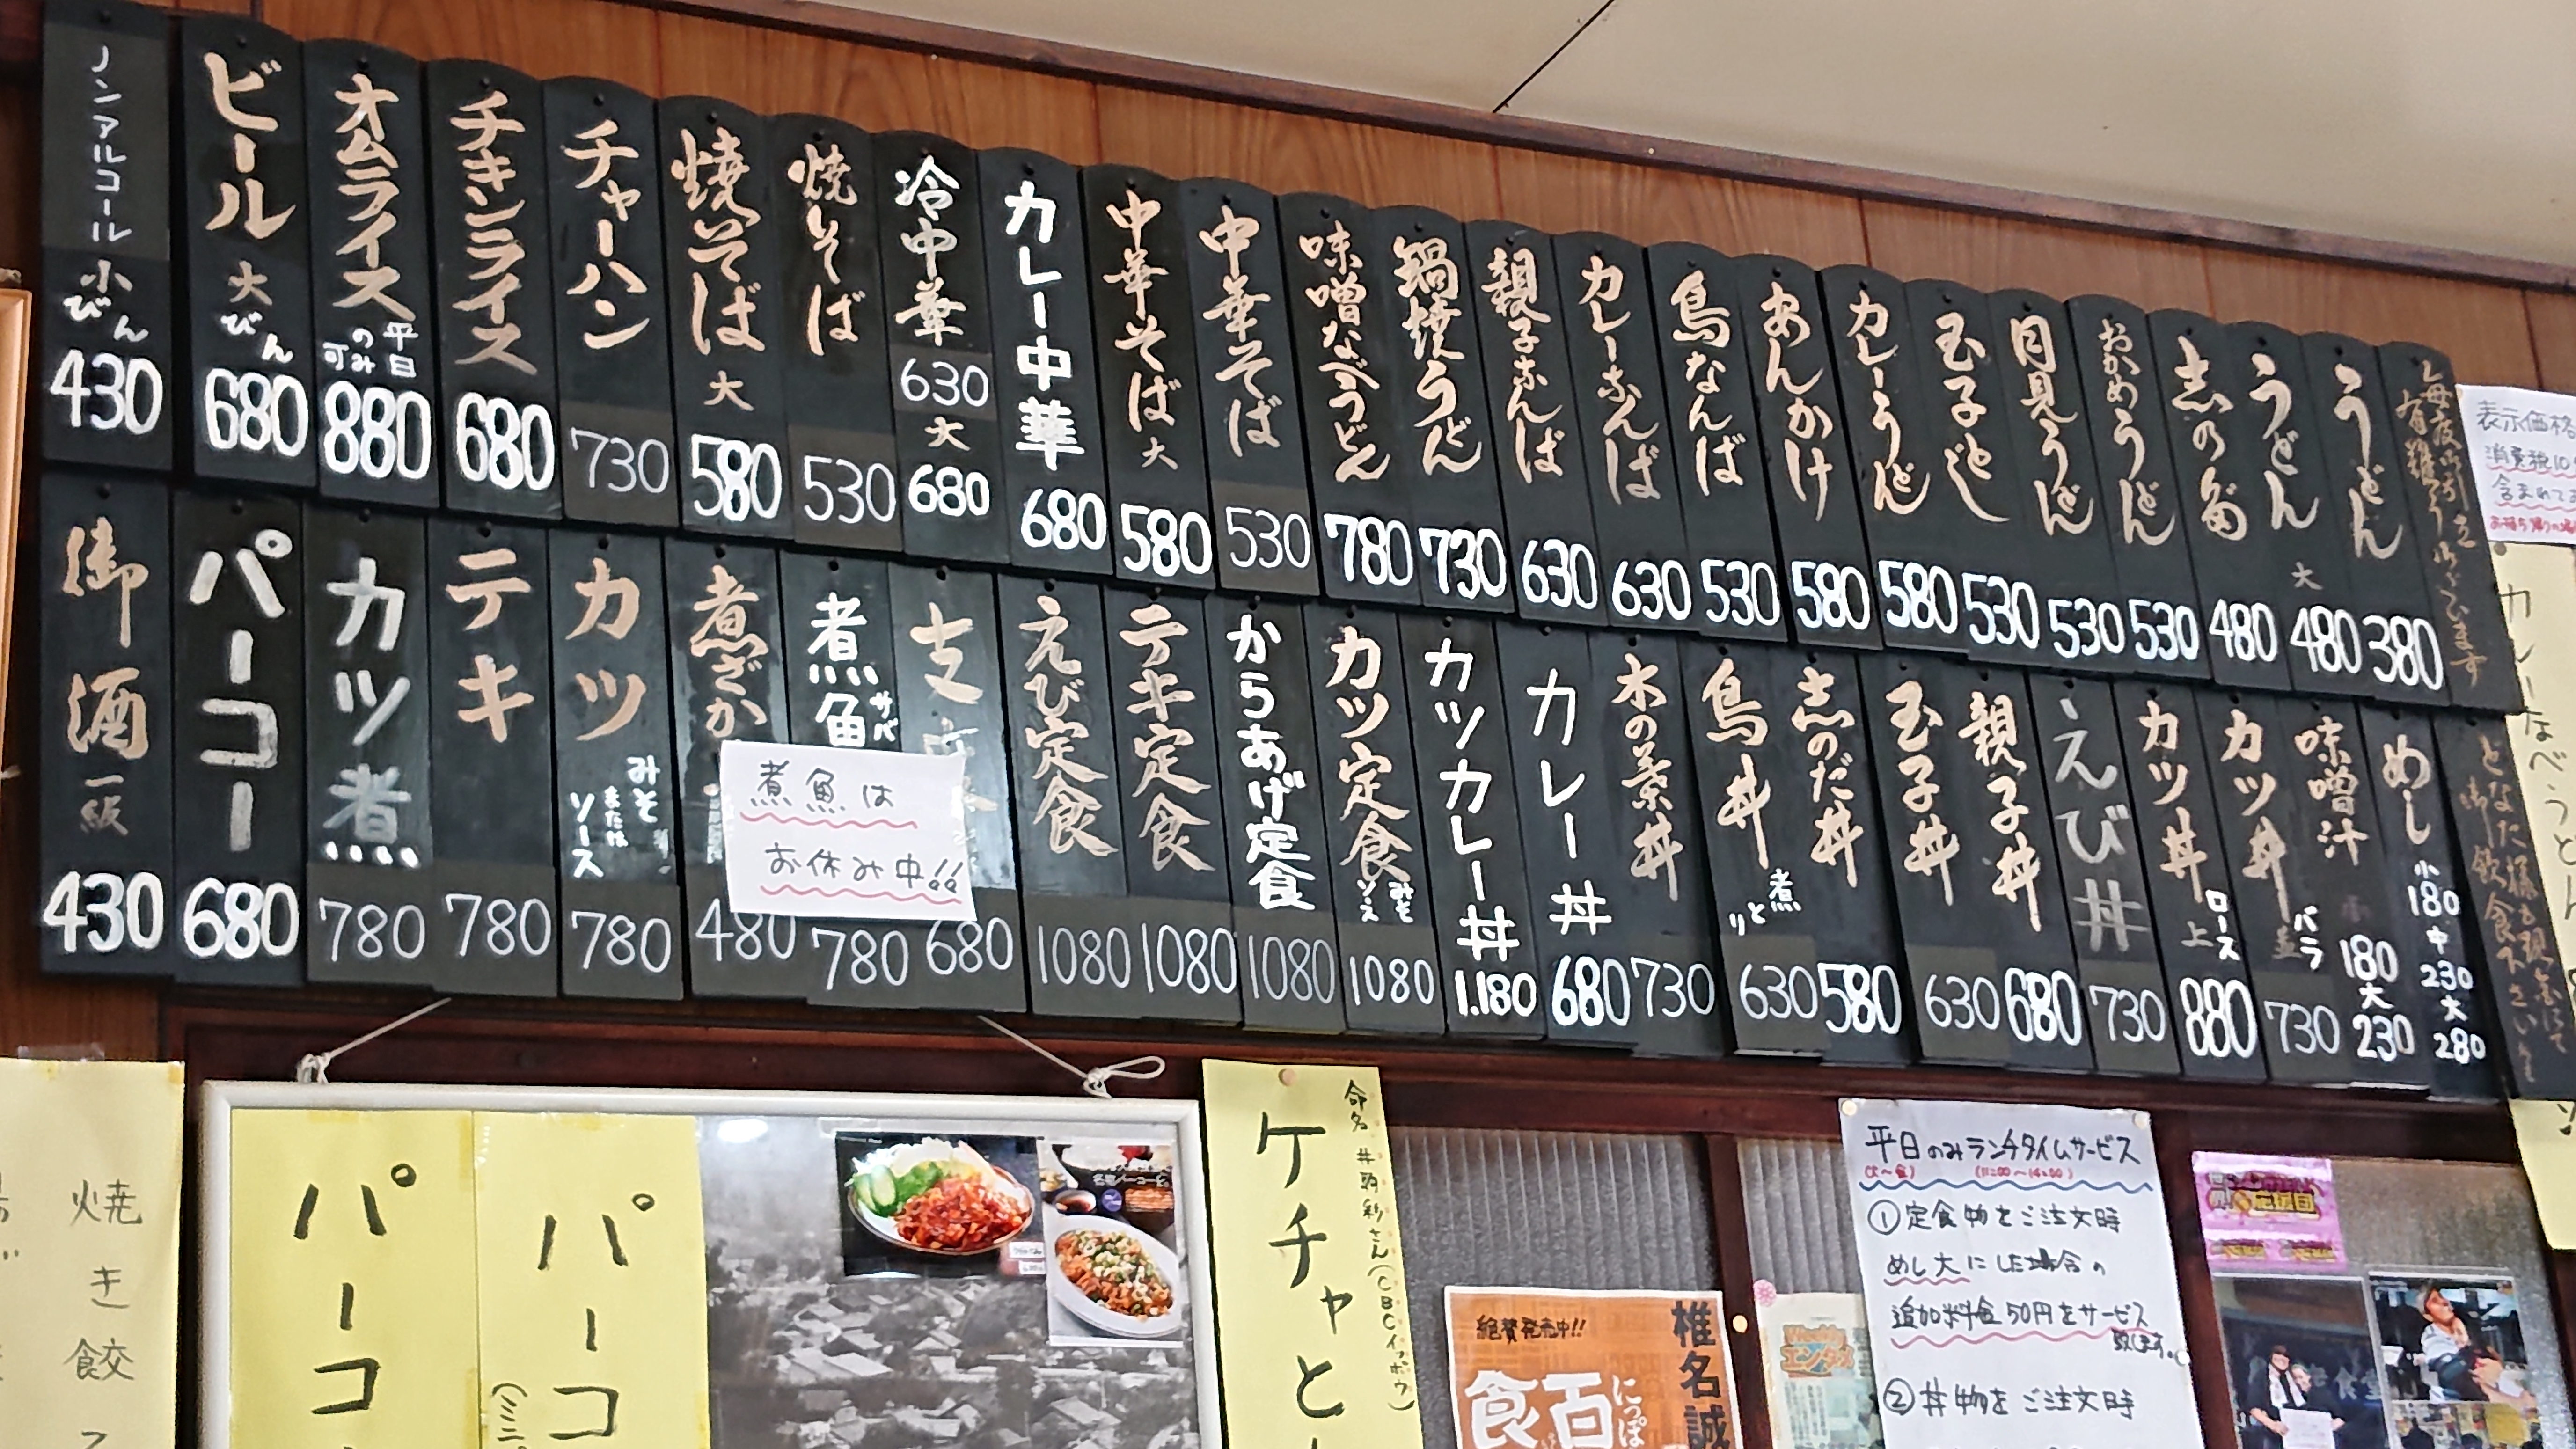 毎度御引立
有難うございます
うどん 380
うどん 大 480
志の田 480
おかめうどん 530
月見うどん 530
玉子とじ 530
カレーうどん 580
あんかけ 580
鳥なんば 530
カレーなんば 630
親子なんば 630
鍋焼うどん 730
味噌なべうどん 780
中華そば 530
中華そば 大 580
カレー中華 680
冷中華 630 大 680
焼そば 530
焼そば 大 580
チャーハン 730
チキンライス 680
オムライス 平日のみ可 880
ビール 大びん 680
ノンアルコール 小びん 430
どなた様も現金にて
御飲食下さい
めし 小 180 中 230 大 280
味噌汁 180 大 230
カツ丼 並 バラ 730
カツ丼 上 ロース 880
えび丼 730
親子丼 680
玉子丼 630
志のだ丼 580
鳥丼 630
木の葉丼 730
カレー丼 680
カツカレー丼 1.180
カツ定食 みそ ソース 1080
からあげ定食 1080
テキ定食 1080
えび定食 1080
支 680
煮魚 サバ 780
煮ざか 480
カツ みそ または ソース 780
テキ 780
カツ煮 780
パーコー 680
御酒 一級 430
煮魚は
お休み中!!
表示価格
消費税10
含まれて
カレーなべうどん
焼き餃子
パーコ
パーコ
(ミニ
命名 井戸利彩さん(CBCイッポウ)
ケチャと
絶賛発売中!!
椎名誠
にっぽ
食百
Weekly
エンタメ
平日のみランチタイムサービス
(火〜金) (11:00〜14:00)
①定食物をご注文時
めし大にした場合の
追加料金50円をサービス
致します。
②丼物をご注文時
応援団